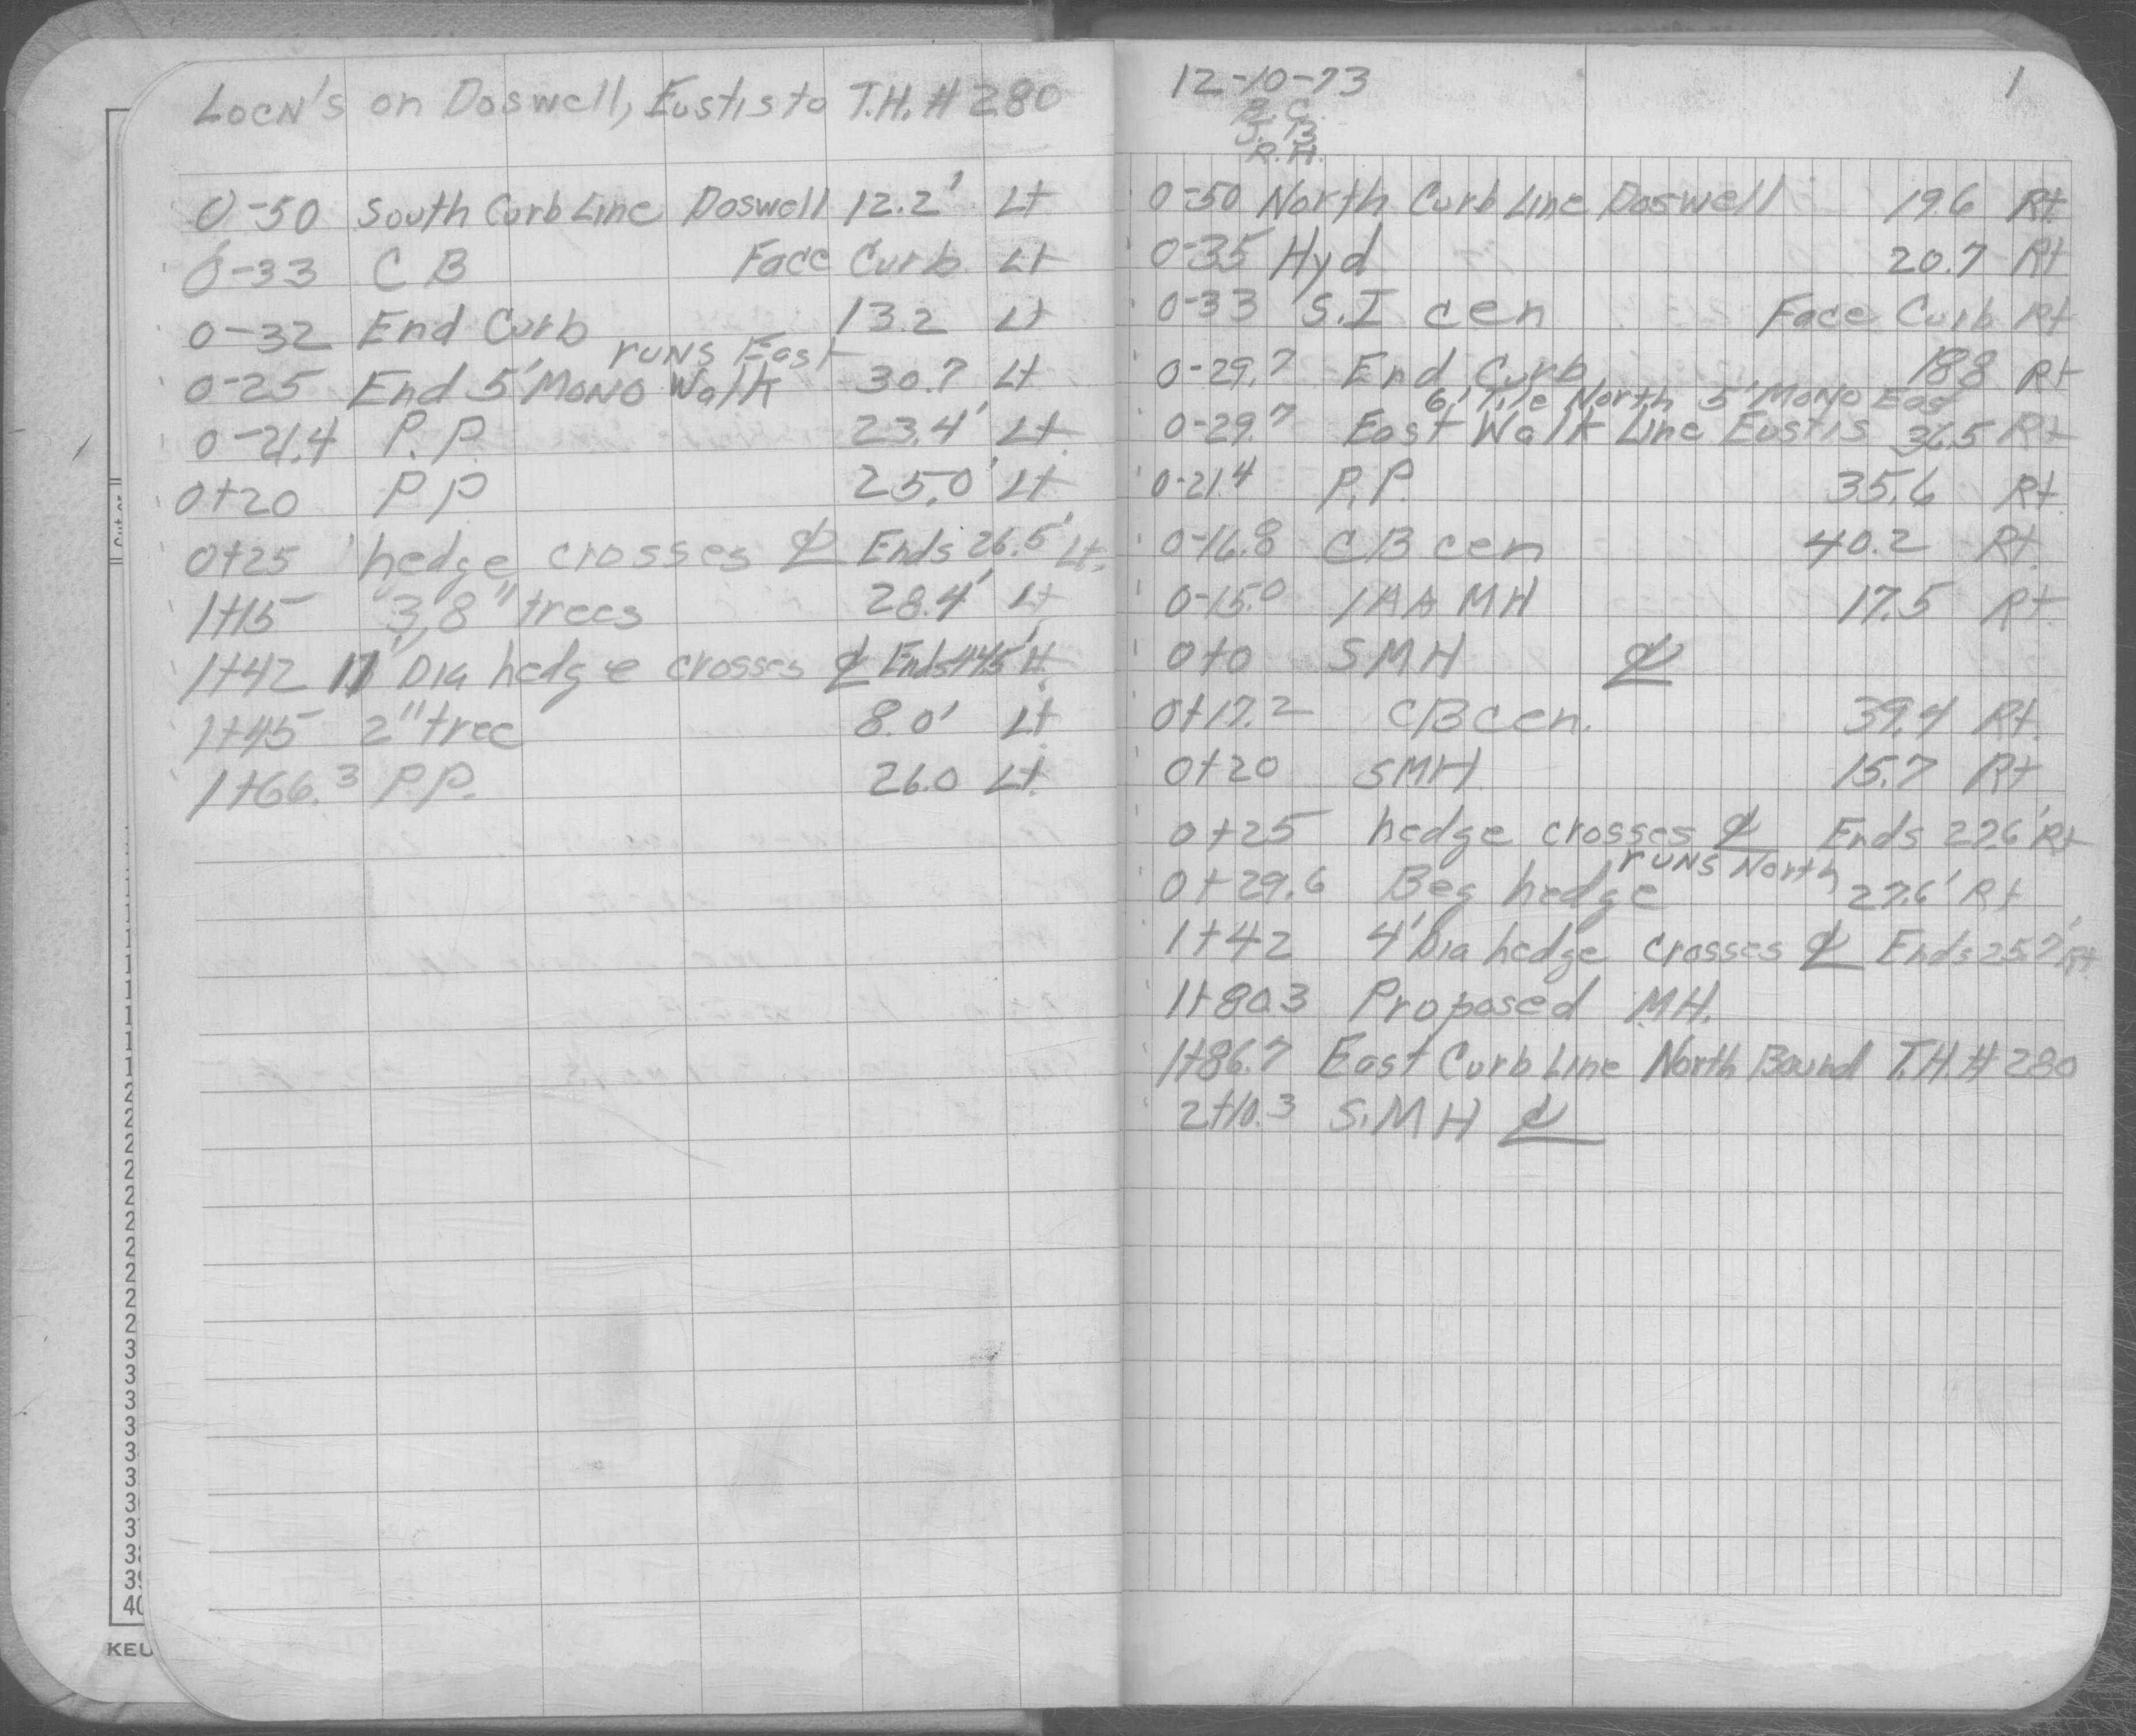 Locn's on Doswell, Eustis to T.H. # 280
0-50 South Curb Line Doswell 12.2' Lt
0-33 C B Face Curb Lt
0-32 End Curb 13.2 Lt
runs East
0-25 End 5' Mono Walk 30.7 Lt
0-21.4 P.P. 23.4' Lt.
0+20 P P 25.0' Lt
0+25 hedge crosses ℄ Ends 26.5' Lt.
1+15 3, 8" trees 28.4' Lt
1+42 Dia hedge crosses ℄ Ends Lt.
1+45 2" tree 8.0' Lt.
1+66.3 P.P. 26.0 Lt.
12-10-73
B. C.
J. B
R. H.
1
0-50 North Curb Line Doswell 19.6 Rt
0-35 Hyd 20.7 Rt
0-33 S.I cen Face Curb Rt
0-29.7 End Curb 18.8 Rt
6' Tile North 5' Mono East
0-29.7 East Walk Line Eustis 36.5 Rt
0-21.4 P.P. 35.6 Rt.
0-16.8 CB cen 40.2 Rt.
0-15.0 1AA MH 17.5 Rt.
0+0 SMH ℄
0+17.2 CB cen. 39.4 Rt.
0+20 SMH 15.7 Rt
0+25 hedge crosses ℄ Ends 27.6' Rt
runs North
0+29.6 Beg hedge 27.6' Rt
1+42 4' Dia hedge crosses ℄ Ends 25.7' Rt
1+80.3 Proposed MH.
1+86.7 East Curb Line North Bound T.H. # 280
2+10.3 S.MH ℄
KEU